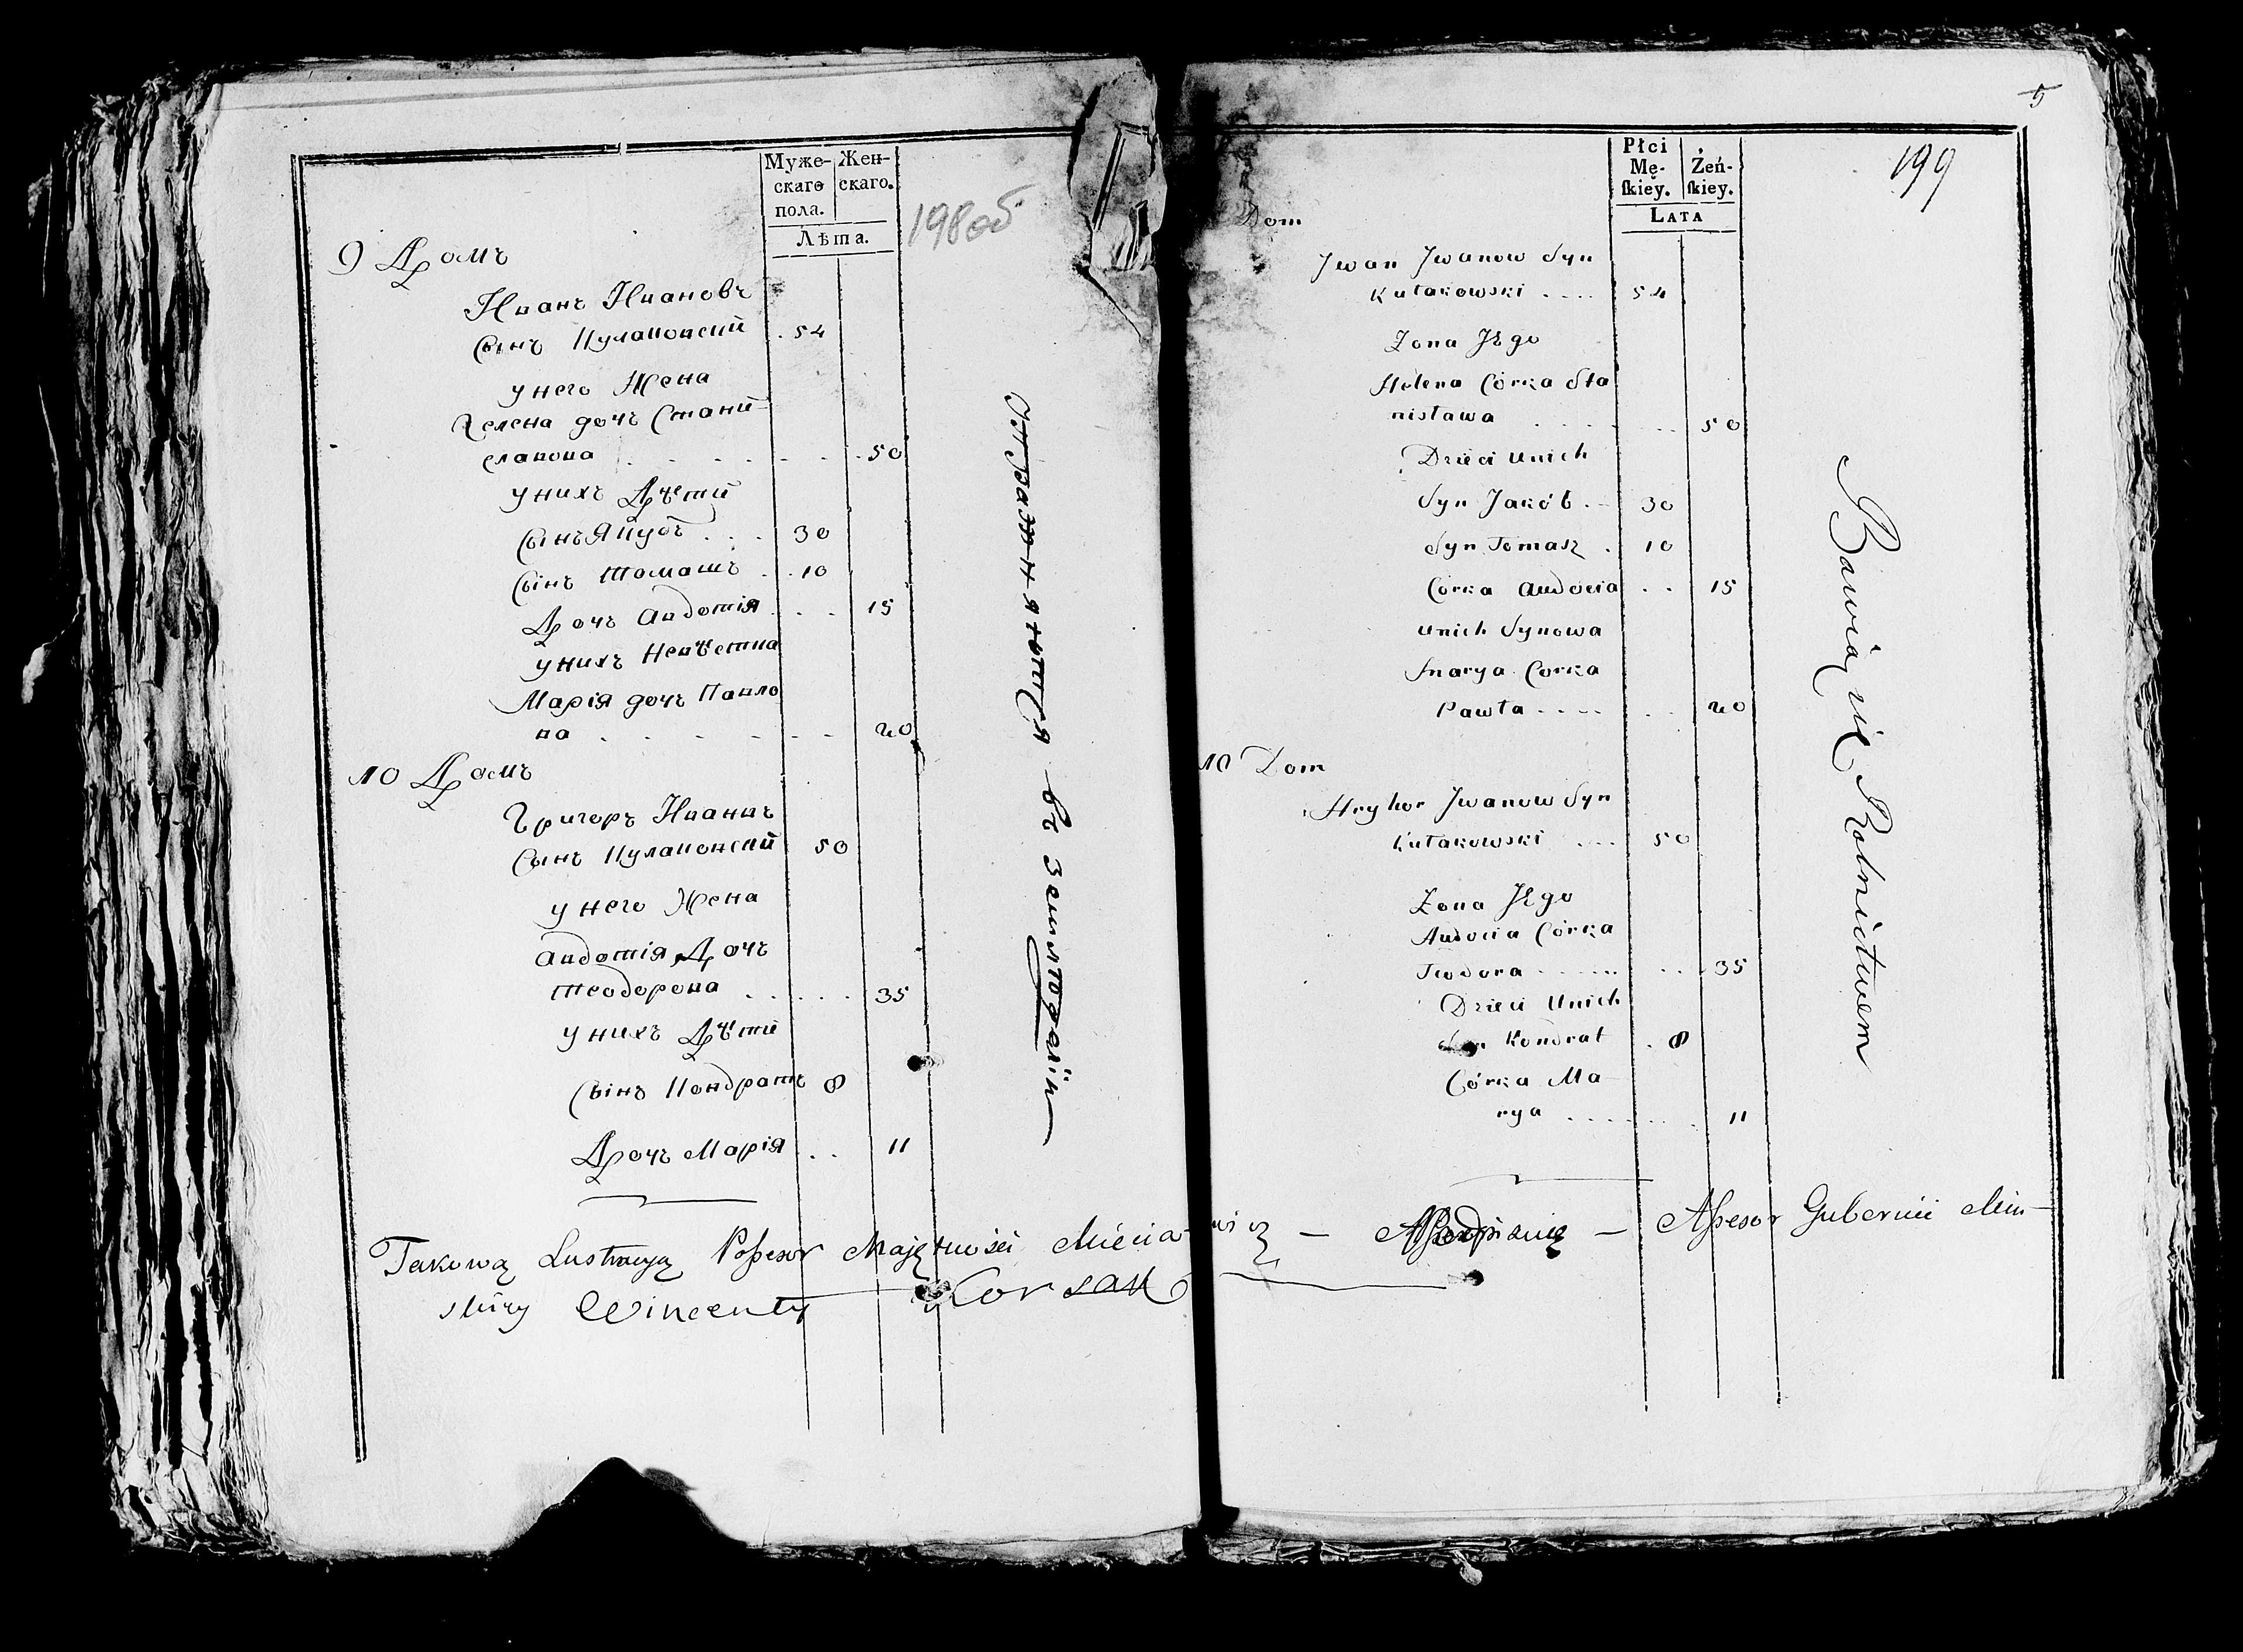 Муже-
скаго
пола.
Жен-
скаго.
Лѣта.
198об
9 Домъ
Иванъ Ивановъ
Сынъ Кулаковскій . 54
у него Жена
Гелена дочъ Стани-
славова . . . . . . 50
у нихъ Дѣти
Сынъ Якубъ . . . 30
Сынъ Томашъ . . 10
Дочъ Авдотія . . . 15
у нихъ Невѣстка
Марія дочъ Павло
ва . . . . . . 20
10 Домъ
Григоръ Иванъ
Сынъ Кулаковскій 50
у него Жена
Авдотія Дочъ
Теодорова . . . . . 35
у нихъ Дѣти
Сынъ Кондратъ 8
Дочъ Марія . . 11
въ
5
199
Płci
Mę-
skiey.
Żeń-
skiey.
LATA
Dom
Jwan Jwanow Syn
Kułakowski . . . . 54
Zona JEgo
Helena Córka Sta
nisława . . . . . . 50
Dzieci Unich
Syn Jakób . . 30
Syn Tomasz . 10
Córka Audocia . . 15
Unich Synowa
Marya Corka
Pawła . . . . . . 20
10 Dom
Hryhor Jwanow Syn
Kułakowski . . . 50
Zona JEgo
Audocia Córka
Teodora . . . . . . . . . 35
Dzieci Unich
Syn Kondrat . 8
Córka Ma
rya . . . . . . . . 11
Bawią się Rolnictwem
Takową Lustracyą Possesor Maiętności wicz — Podpisuię — Assesor Gubernii Min-
skiéy Wincenty Korsak